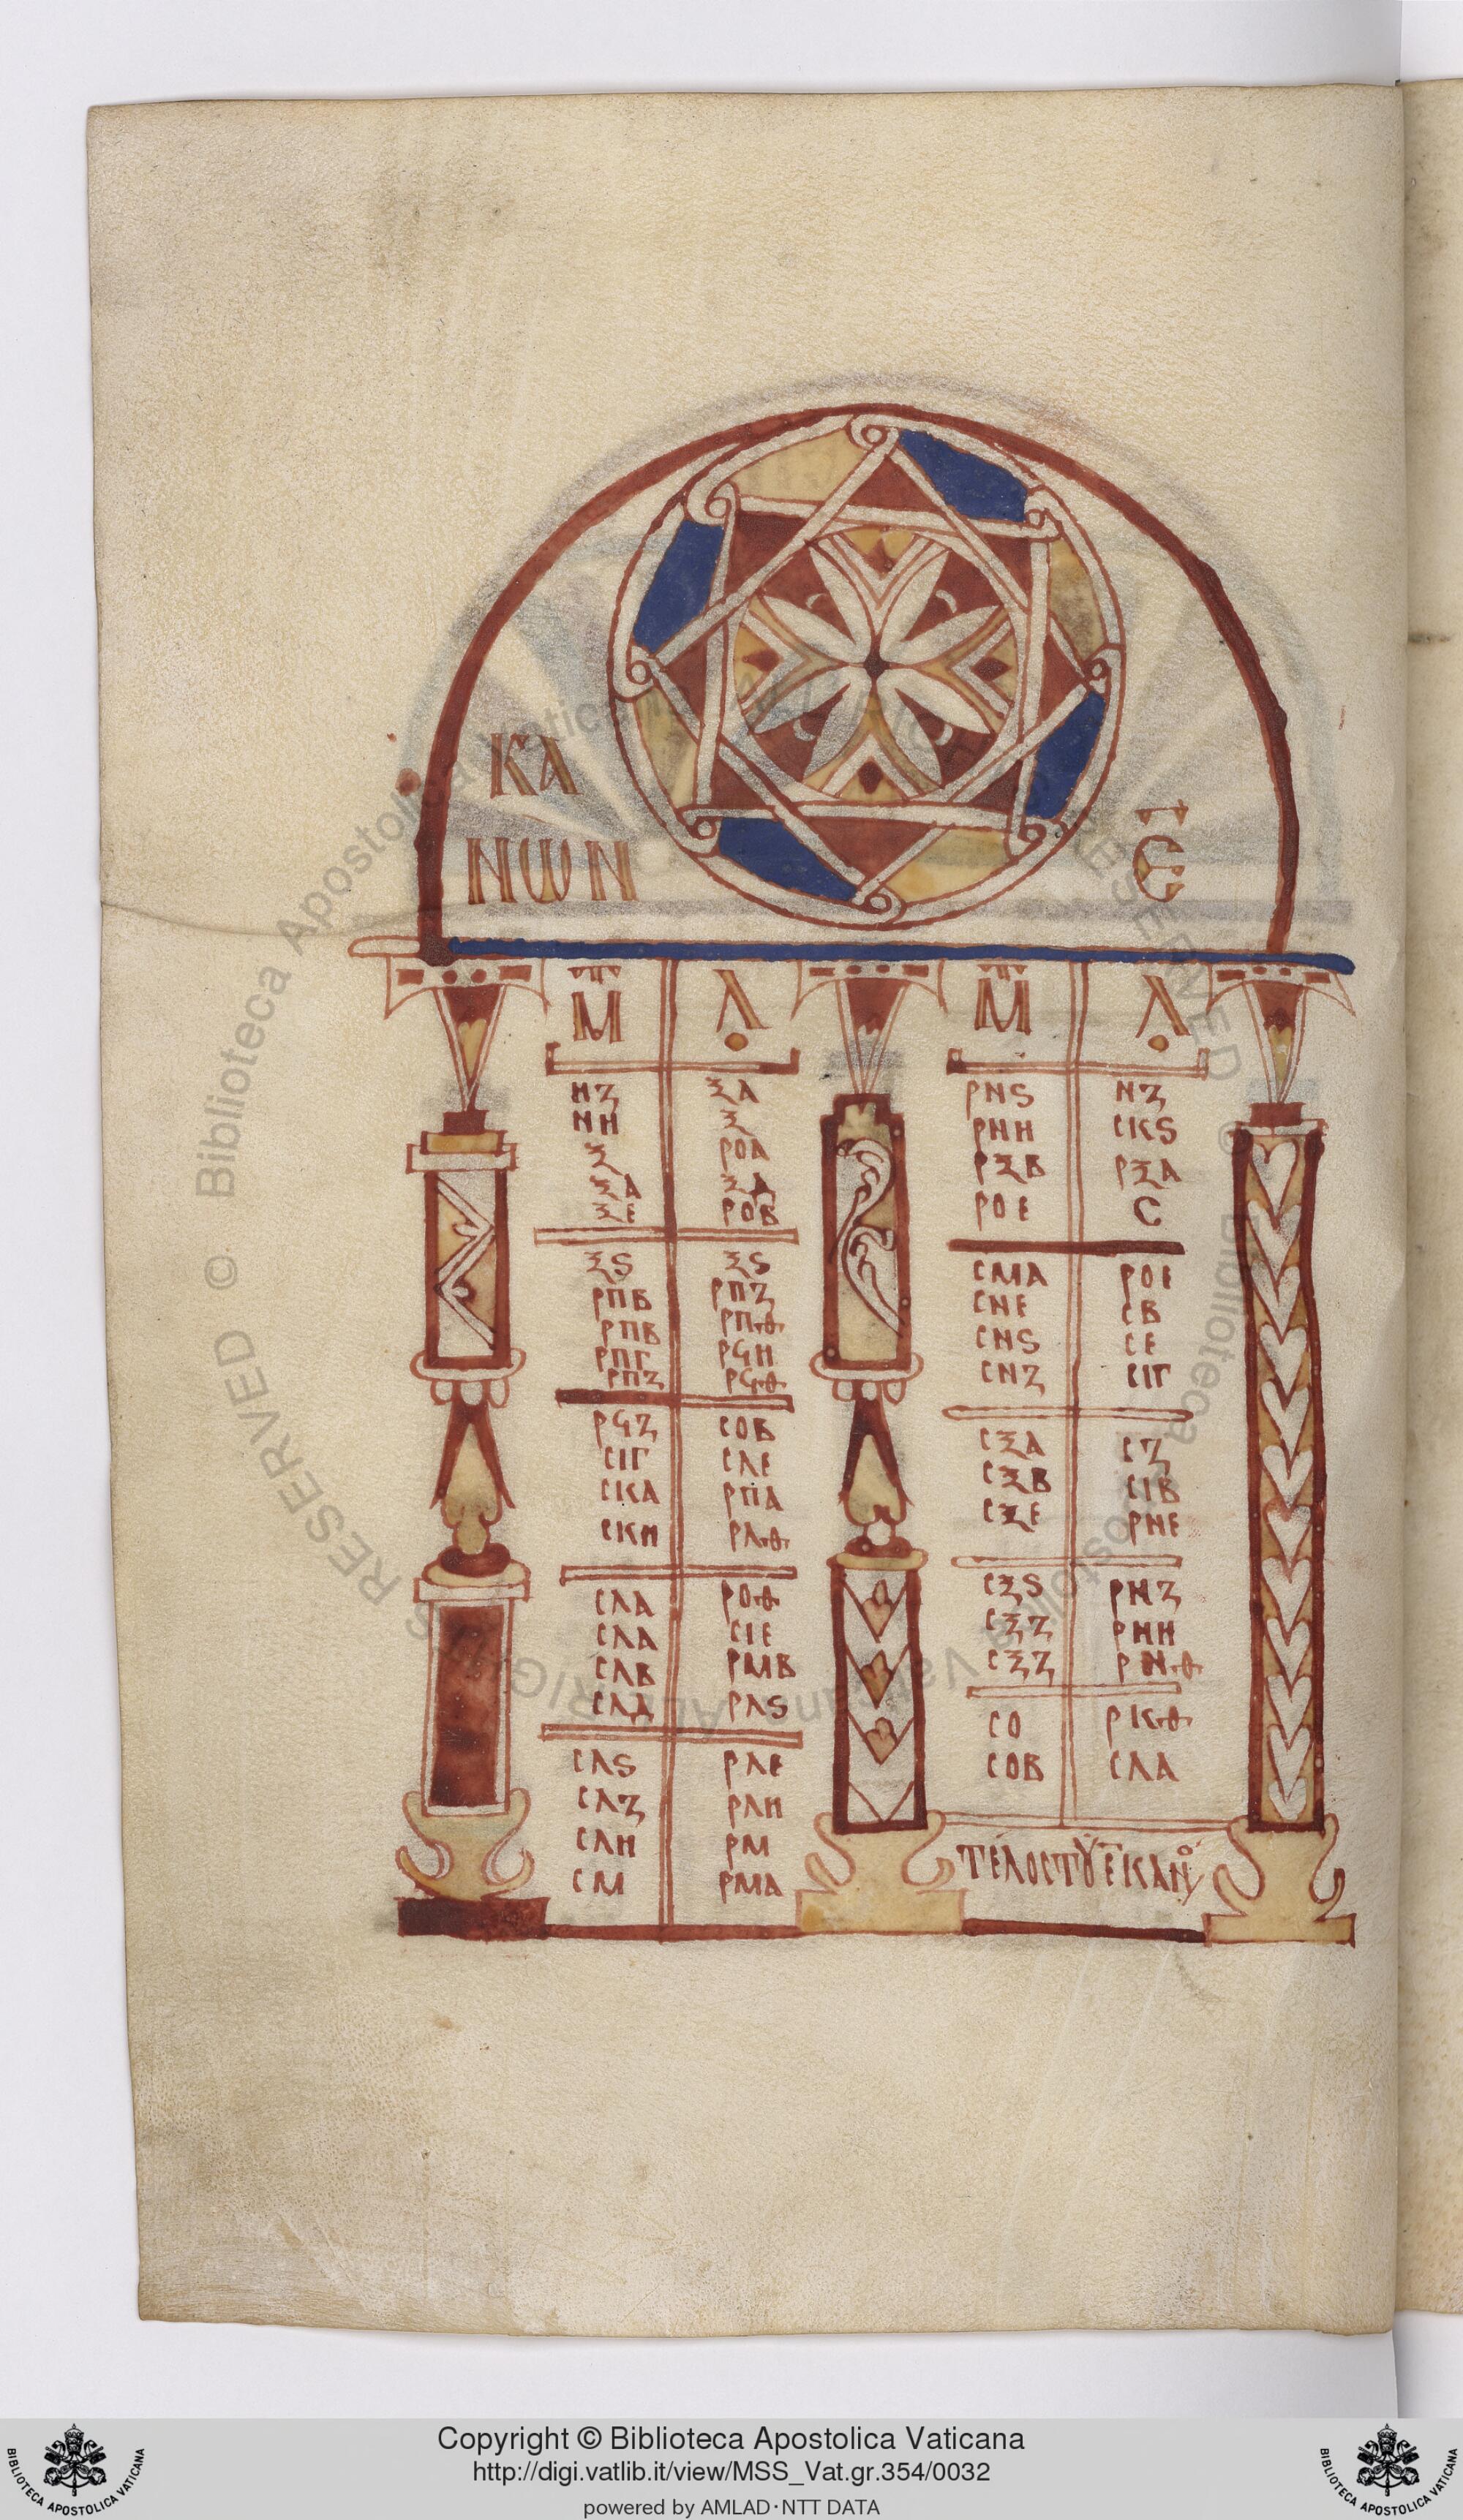 ΚΑ
ΝΩΝ Ε
Μ Λ Μ Λ
ΝΖ ΞΑ ΡΝϚ ΝΖ
ΝΗ Ξ ΡΝΗ ϹΚϚ
Ξ ΡΟΑ ΡΞΒ ΡΞΑ
ΞΑ ΞΔ ΡΟΕ Ϲ
ΞΕ ΡΟΒ
ΞϚ ΞϚ ϹΜΑ ΡΟΕ
ΡΠΒ ΡΠΖ ϹΝΕ ϹΒ
ΡΠΒ ΡΠΘ ϹΝϚ ϹΕ
ΡΠΓ ΡϞΗ ϹΝΖ ϹΙΓ
ΡΠΖ ΡϞΘ
ΡϞΖ ϹΟΒ ϹΞΑ ϹΖ
ϹΙΓ ϹΛΕ ϹΞΒ ϹΙΒ
ϹΚΑ ΡΠΑ ϹΞΕ ΡΝΕ
ϹΚΗ ΡΛΘ
ϹΛΑ ΡΟΘ ϹΞϚ ΡΝΖ
ϹΛΑ ϹΙΕ ϹΞΖ ΡΝΗ
ϹΛΒ ΡΜΒ ϹΞΖ ΡΝΘ
ϹΛΔ ΡΛϚ ϹΟ ΡΚΘ
ϹΛϚ ΡΛΕ ϹΟΒ ϹΛΑ
ϹΛΖ ΡΛΗ
ϹΛΗ ΡΜ
ϹΜ ΡΜΑ
ΤΕΛΟϹ ΤΟΥ Ε ΚΑΝΟ
BIBLIOTECA APOSTOLICA VATICANA
Copyright © Biblioteca Apostolica Vaticana
http://digi.vatlib.it/view/MSS_Vat.gr.354/0032
powered by AMLAD·NTT DATA
BIBLIOTECA APOSTOLICA VATICANA